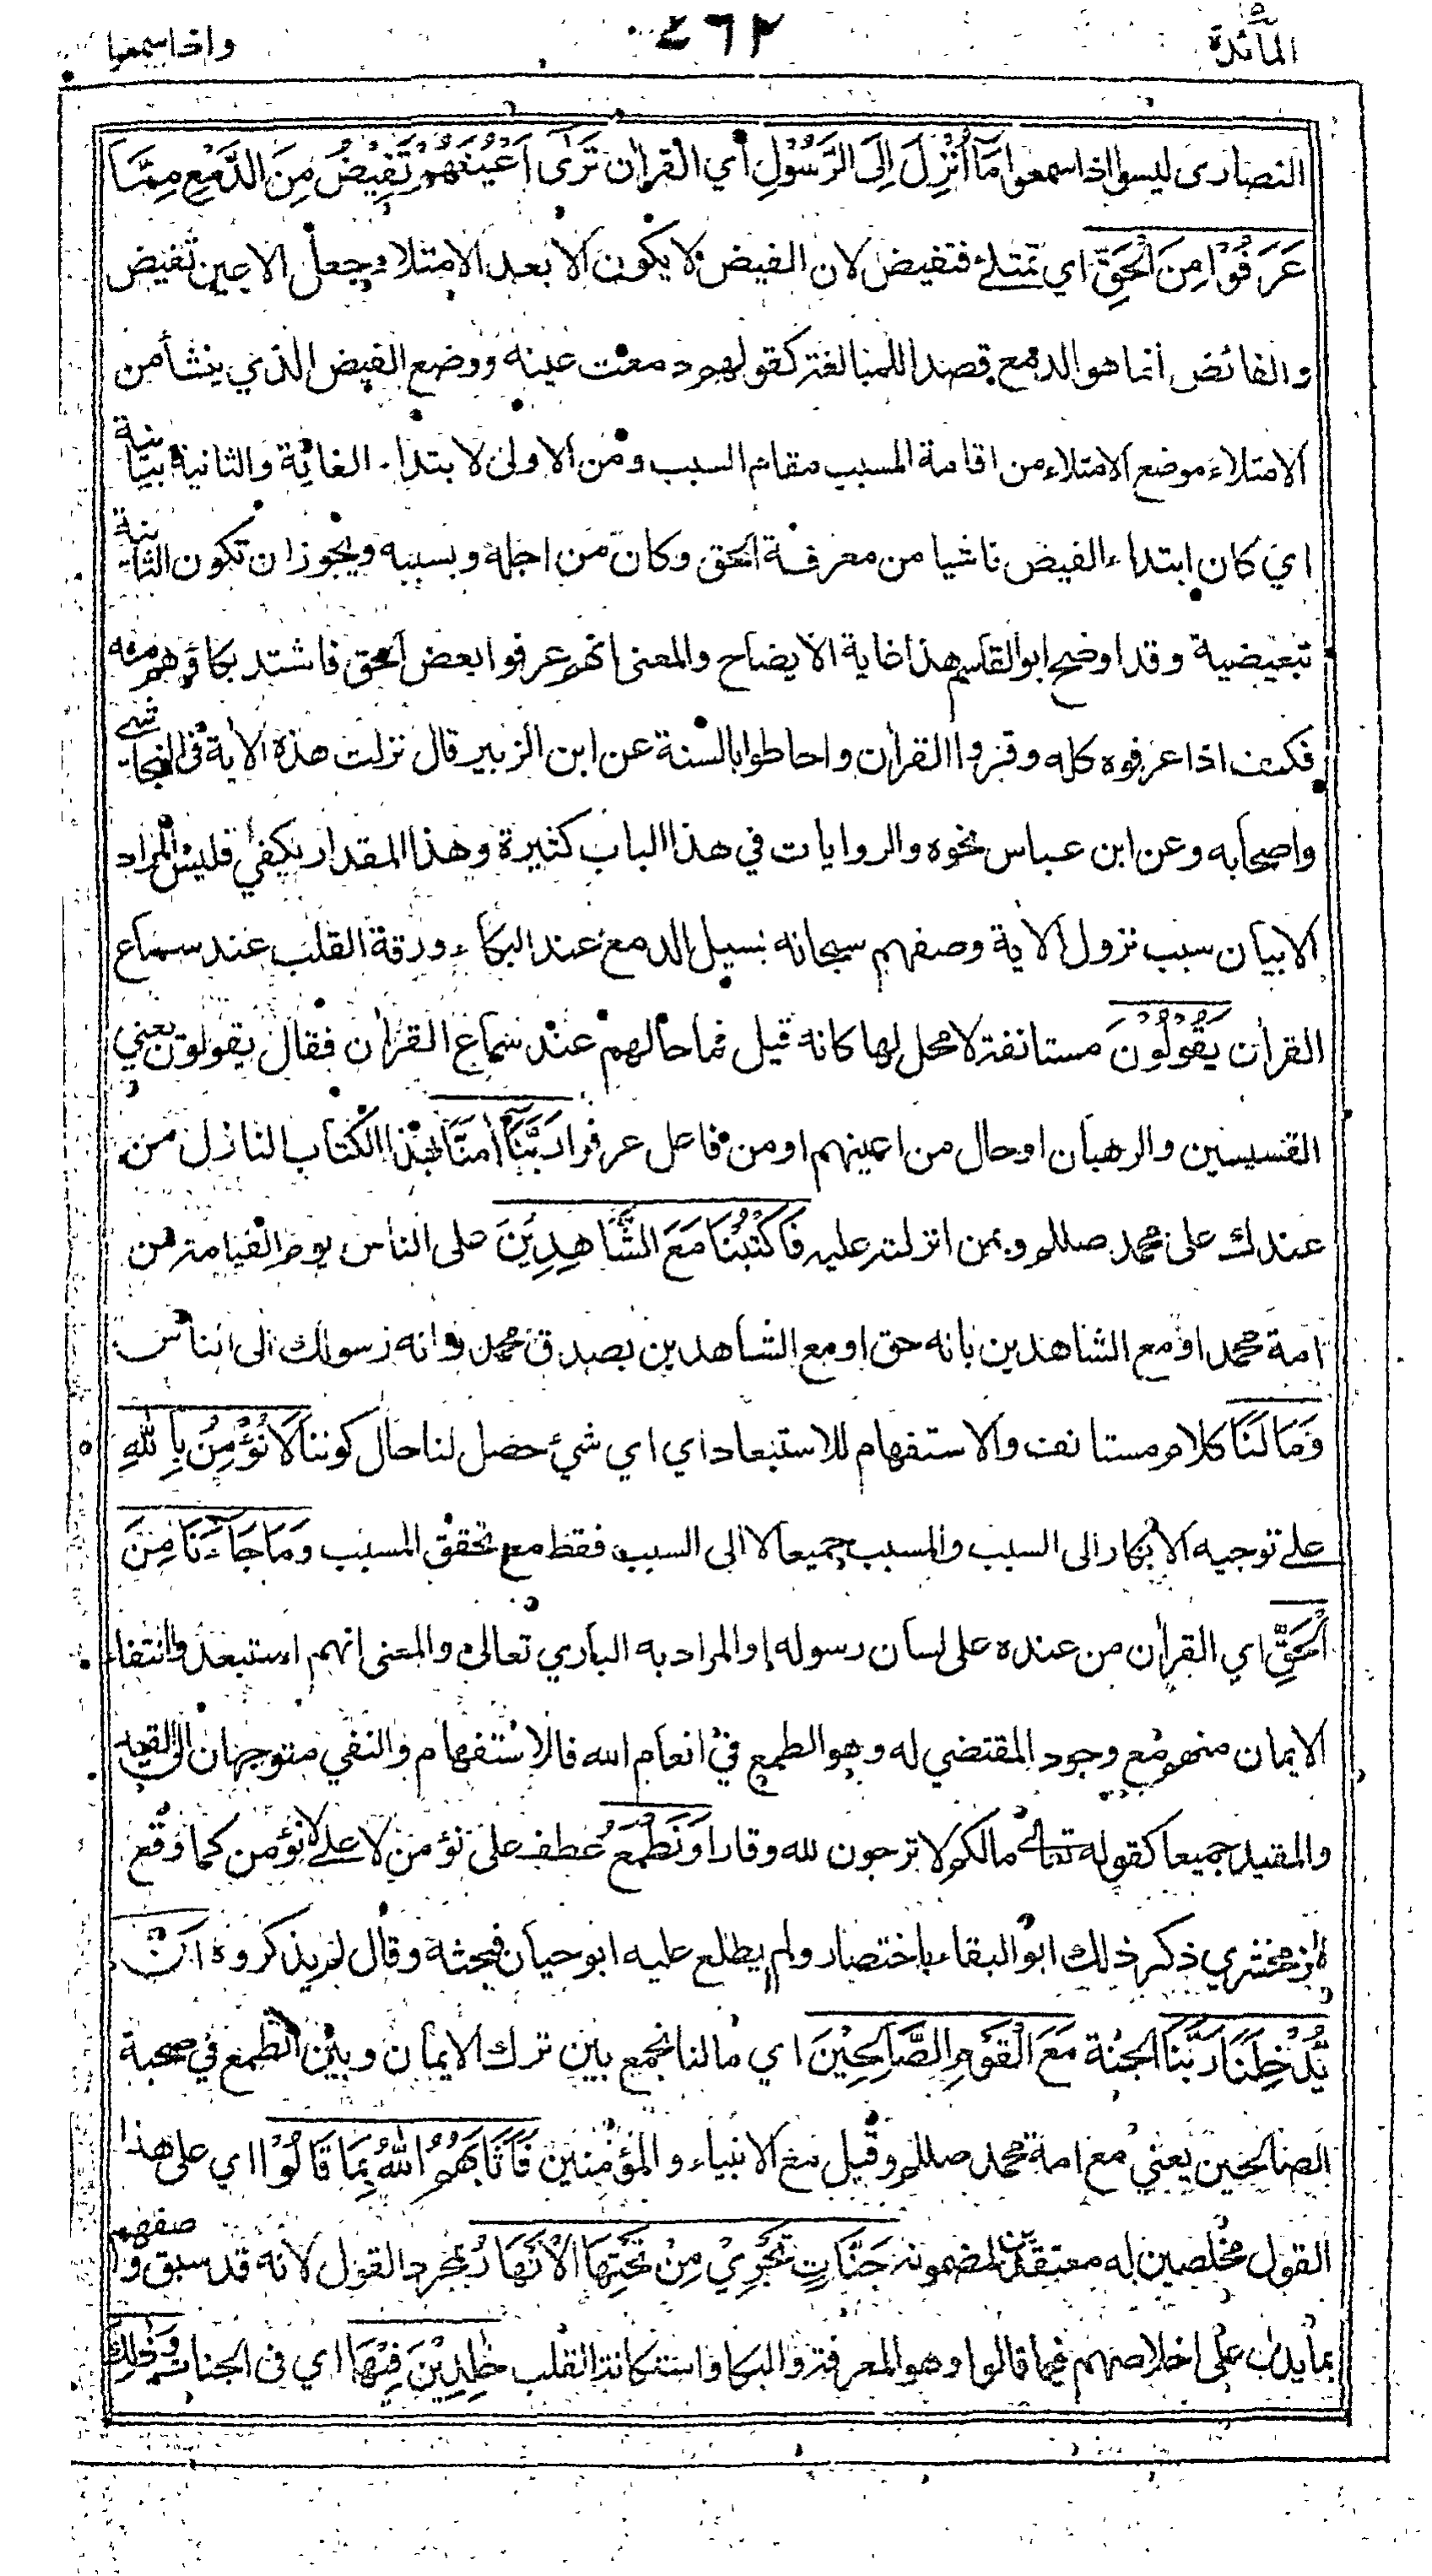 المائدة
٤٦٢
واذا سمعوا
النصارى ليسوا اذا سمعوا مَآ أُنْزِلَ إِلَى الرَّسُوْلِ أي القرآن تَرٰى أَعْيُنَهُمْ تَفِيْضُ مِنَ الدَّمْعِ مِمَّا
عَرَفُوْا مِنَ الْحَقِّ اي تمتلئ فتفيض لان الفيض لا يكون الا بعد الامتلاء جعل الاعين تفيض
والفائض انما هو الدمع قصدا للمبالغة كقولهم دمعت عينه ووضع الفيض الذي ينشأ من
الامتلاء موضع الامتلاء من اقامة المسبب مقام السبب ومن الاولى لابتداء الغاية والثانية بيانية
اي كان ابتداء الفيض ناشيا من معرفة الحق وكان من اجله وبسببه ويجوز ان تكون الثانية
تبعيضية وقد اوضح ابو القاسم هذا غاية الايضاح والمعنى انهم عرفوا بعض الحق فاشتد بكاؤهم منه
فكيف اذا عرفوه كله وقرؤا القرآن واحاطوا بالسنة عن ابن الزبير قال نزلت هذه الاية في النجاشي
واصحابه وعن ابن عباس نحوه والروايات في هذا الباب كثيرة وهذا المقدار يكفي فليس المراد
الا بيان سبب نزول الاية وصفهم سبحانه بسيل الدمع عند البكاء ورقة القلب عند سماع
القرآن يَقُوْلُوْنَ مستانفة لا محل لها كانه قيل فما حالهم عند سماع القرآن فقال يقولون يعني
القسيسين والرهبان او حال من اعينهم او من فاعل عرفوا رَبَّنَآ اٰمَنَّا بهذا الكتاب النازل من
عندك على محمد صللم وبمن انزلته عليه فَاكْتُبْنَا مَعَ الشَّاهِدِيْنَ على الناس يوم القيامة من
امة محمد او مع الشاهدين بانه حق او مع الشاهدين بصدق محمد وانه رسولك الى الناس
وَمَا لَنَا كلام مستانف والاستفهام للاستبعاد اي اي شيء حصل لنا حال كوننا لَا نُؤْمِنُ بِاللهِ
على توجيه الانكار الى السبب والمسبب جميعا لا الى السبب فقط مع تحقق المسبب وَمَا جَآءَنَا مِنَ
الْحَقِّ اي القرآن من عنده على لسان رسوله او المراد به الباري تعالى والمعنى انهم استبعدوا انتفاء
الايمان منهم مع وجود المقتضي له وهو الطمع في انعام الله فالاستفهام والنفي متوجهان الى القيد
والمقيد جميعا كقوله تعالى مالكم لا ترجون لله وقارا وَنَطْمَعُ عطف على نؤمن لا على لا نؤمن كما وقع
للزمخشري ذكر ذلك ابو البقاء باختصار ولم يطلع عليه ابو حيان فبحثه وقال لم يذكروه اَنْ
يُّدْخِلَنَا رَبُّنَا الجنة مَعَ الْقَوْمِ الصَّالِحِيْنَ اي مالنا نجمع بين ترك الايمان وبين الطمع في صحبة
الصالحين يعني مع امة محمد صللم وقيل مع الانبياء والمؤمنين فَأَثَابَهُمُ اللهُ بِمَا قَالُوْا اي على هذا
القول مخلصين له معتقدين لمضمونه جَنَّاتٍ تَجْرِيْ مِنْ تَحْتِهَا الْاَنْهَارُ بمجرد القول لانه قد سبق وصفهم
بما يدل على اخلاصهم فيما قالوا وهو المعرفة والبكاء واستكانة القلب خٰلِدِيْنَ فِيْهَا اي في الجنات وَذٰلِكَ